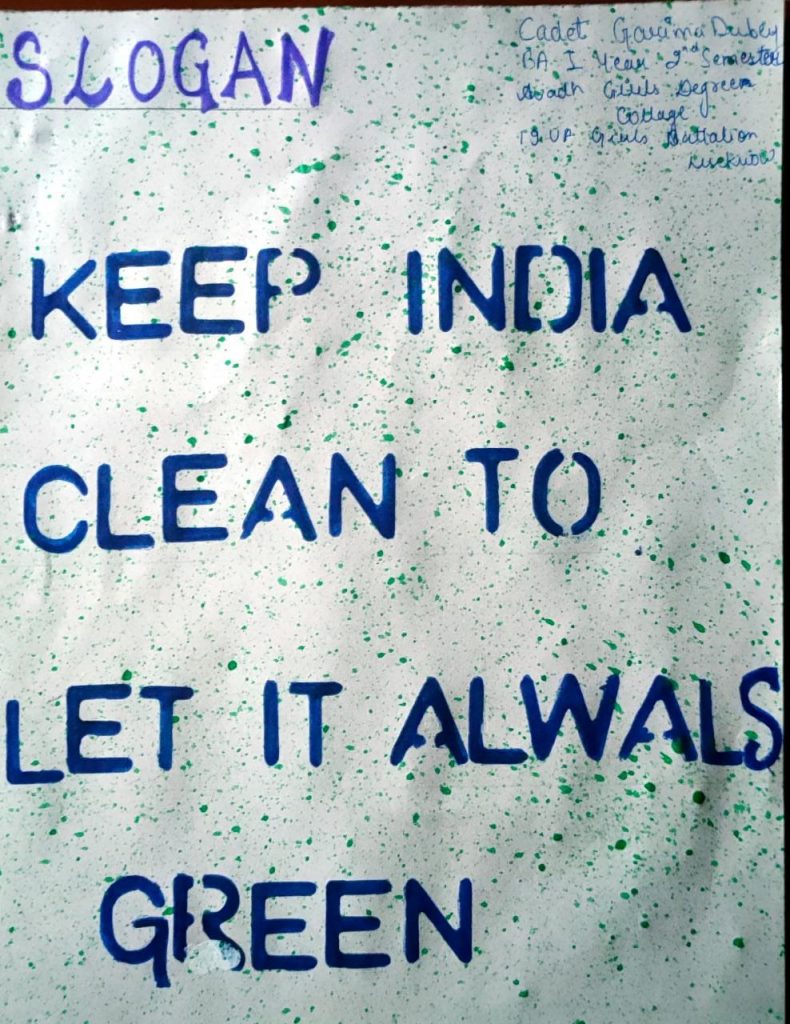 SLOGAN
Cadet Garima Dubey
BA I Year 2nd Semester
Avadh Girls Degree
Collage
19 UP Girls Battalion
Lucknow
KEEP INDIA
CLEAN TO
LET IT ALWALS
GREEN